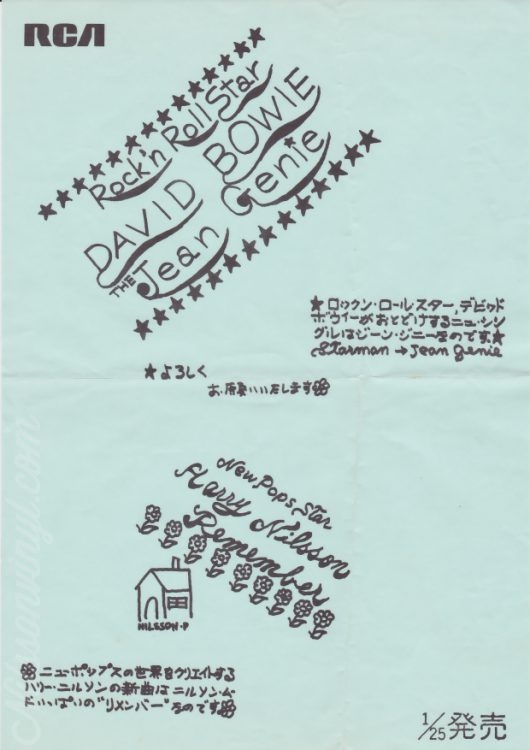 RCA
Rock'n Roll Star
DAVID BOWIE
THE Jean Genie
★ロックン・ロール・スター、デビッド
ボウイーがおとどけするニュー・シン
グルはジーン・ジニーなのです★
Starman → Jean Genie
★よろしく
お・願い致します
New, Pops, Star
Harry Nilsson
Remember
NILSSON・P
ニューポップスの世界をクリエイトする
ハリー・ニルソンの新曲はニルソン・ム-
ドいっぱいの"リメンバー"なのです
1/25発売
Nilssonvinyl.com